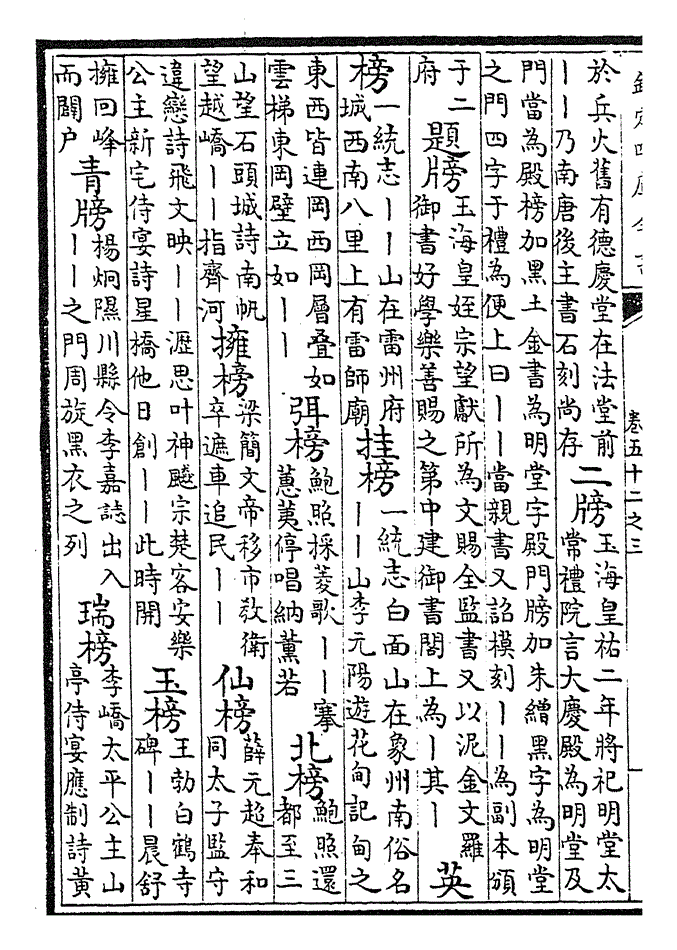 欽定四庫全書
卷五十二之三
於兵火舊有德慶堂在法堂前
丨丨乃南唐後主書石刻尚存
二牓
玉海皇祐二年將祀明堂太
常禮院言大慶殿為明堂及
門當為殿榜加黑土金書為明堂字殿門牓加朱繒黑字為明堂
之門四字于禮為便上曰丨丨當親書又詔模刻丨丨為副本頒
于二
府
題牓
玉海皇姪宗望獻所為文賜全監書又以泥金文羅
御書好學樂善賜之第中建御書閣上為丨其丨
英
榜
一統志丨丨山在雷州府
城西南八里上有雷師廟
挂榜
一統志白面山在象州南俗名
丨丨山李元陽遊花甸記甸之
東西皆連岡西岡層疊如
雲梯東岡壁立如丨丨
弭榜
鮑照採菱歌丨丨搴
蕙荑停唱納薰若
北榜
鮑照還
都至三
山望石頭城詩南帆
望越嶠丨丨指齊河
擁榜
梁簡文帝移市敎衛
卒遮車追民丨丨
仙榜
薛元超奉和
同太子監守
違戀詩飛文映丨丨瀝思叶神飈宗楚客安樂
公主新宅侍宴詩星橋他日創丨丨此時開
玉榜
王勃白鶴寺
碑丨丨晨舒
擁回峰
而闢户
青牓
楊炯隰川縣令李嘉誌出入
丨丨之門周旋黑衣之列
瑞榜
李嶠太平公主山
亭侍宴應制詩黃